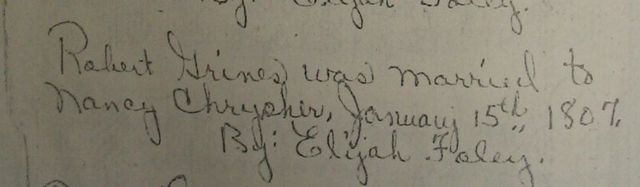 By: Elijah Foley.
Robert Grines was married to
Nancy Chrysher, January 15th, 1807.
By: Elijah Foley.